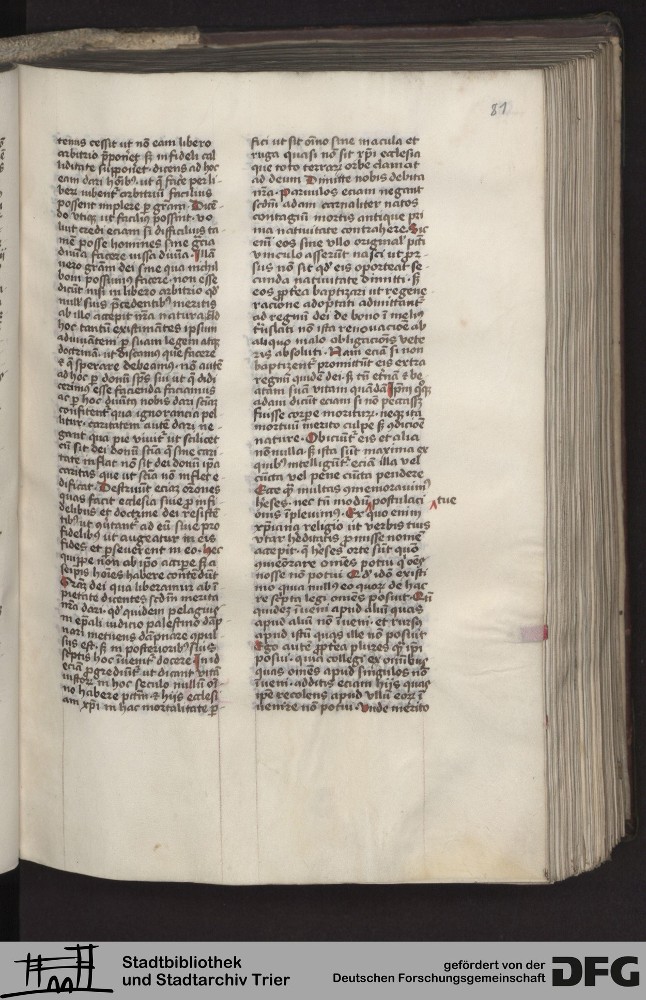 81
tenus cessit ut nō eam libero
arbitrio p̄poneret sꝫ infideli cal
liditate supponeret · dicens ad hoc
eam dari hoībꝫ · ut q̄ facere per li
berū iubent' arbitriū facilius
possent implere ꝑ grāciā · Dicē
do utiqꝫ ut faciliꝰ possint · vo
luit credi eciam si difficilius ta
mē posse homines sine grā
diuīa facere iussa diuīa · Illā
vero grām dei sine qua nichil
boni possumꝰ facere · non esse
dicūt nisi in libero arbitrio qd'
nullꝭ suis p̄cedentibꝰ meritis
ab illo accepit nr̄a natura · Ad
hoc tantū existimātes ipsum
adiuuantem ꝑ suam legem atqꝫ
doctrinā · ut discamꝰ que facere
et q̄ sperare debeamꝰ · nō autē
ad hoc ꝑ donū spūs sui ut q̄ didi
cerimꝰ esse facienda faciamus
ac ꝑ hoc diuītꝰ nobis dari sciaꝫ
confitent' qua ignorancia pel
litur · caritatem autē dari ne-
gant qua pie viuit' ut scilicet
cū sit dei donū sciā q̄ sine cari
tate inflat nō sit dei donū ip̄a
caritas que ut sciā nō inflet e
dificat · Destruūt eciā orones
quas facit ecclesia siue ꝑ infi
delibus et doctrine dei resistē
tibꝰ ut cōutant' ad eū siue pro
fidelibꝰ ut augeatur in eis
fides et ꝑseuerent in eo · Hec
quippe non ab ip̄o accipe sꝫ a
seipīs hoīes habere contēdūt
Grām dei qua liberamur ab ī
pietate dicentes scd'm merita
nr̄a dari · qd' quidem pelagiꝰ
in ep̄ali iudicio palestino dāp
nari metuens dāpnare cōpul
sus est · sꝫ in posterioribꝰ suis
sc̄ptis hoc īuenit' docere · In id
eciā ꝓgrediūt' ut dicant vitā
iustoꝝ in hoc seculo nullū oī
no habere pctm̄ · ⁊ hijs ecclesi
am xp̄i in hac mortalitate ꝑ
fici ut sit oīno sine macula et
ruga quasi nō sit xp̄i ecclesia
que toto terraꝝ orbe clamat
ad deum Dimitte nobis debita
nr̄a · Paruulos eciam negant
scdm̄ adam carnaliter natos
contagiū mortis antique pri
ma natiuitate contrahere · Sic
enī eos sine ullo original' pcti
vinculo asserūt nasci ut pr̄
sus nō sit qd' eis oporteat se-
cunda natiuitate dimitti · sꝫ
eos ꝓptea baptizari ut regene
racione adoptati admittant'
ad regnū dei de bono ī meliꝰ
trāslati nō ista renouacione ab
aliquo malo obligacionis vete
ris absoluti · Nam eciā si non
baptizent' promittūt eis extra
regnū quidē dei · sꝫ tn̄ etnā ⁊ be
atam suā vitam quādā Ipm̄ qꝫ
adam dicūt eciam si nō peccassꝫ
fuisse corpe moriturū · neqꝫ ita
mortuū merito culpe sꝫ ꝯdicioē
nature · Obiciūt' eis et alia
nōnulla sꝫ ista sūt maxima ex
quibꝰ intelligūt' eciā illa vel
cūcta vel pene cūcta pendere
Ecce q̄ multas ꝯmemorauimꝰ
heses · nec tn̄ modū postulaci tue
onis īpleuimꝰ · Ex quo enim
xp̄iana religio ut verbis tuis
vtar hēditatis ꝓmisse nomē
accepit · q̄ heses orte sūt quō
cōmēorare omēs potui q̄ oēs
nosse nō potui Qd' ideo existi
mo quia nullꝰ eoꝝ quoꝝ de hac
re scripta legi omēs posuit · Cū
quidē īueni apud aliū quas
apud aliū nō īueni · et rursꝰ
apud istū quas ille nō posuit
Ego autē ꝓptea plures q̄ ip̄i
posui · quia collegi ex omībus
quas omēs apud singulos nō
īueni · additis eciam hijs quas
ipe recolens apud ullū eoꝝ ī
uenire nō potui · Unde merito
Stadtbibliothek
und Stadtarchiv Trier
gefördert von der
Deutschen Forschungsgemeinschaft
DFG